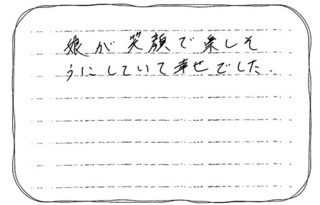 娘が笑顔で楽しそ
うにしていて幸せでした.